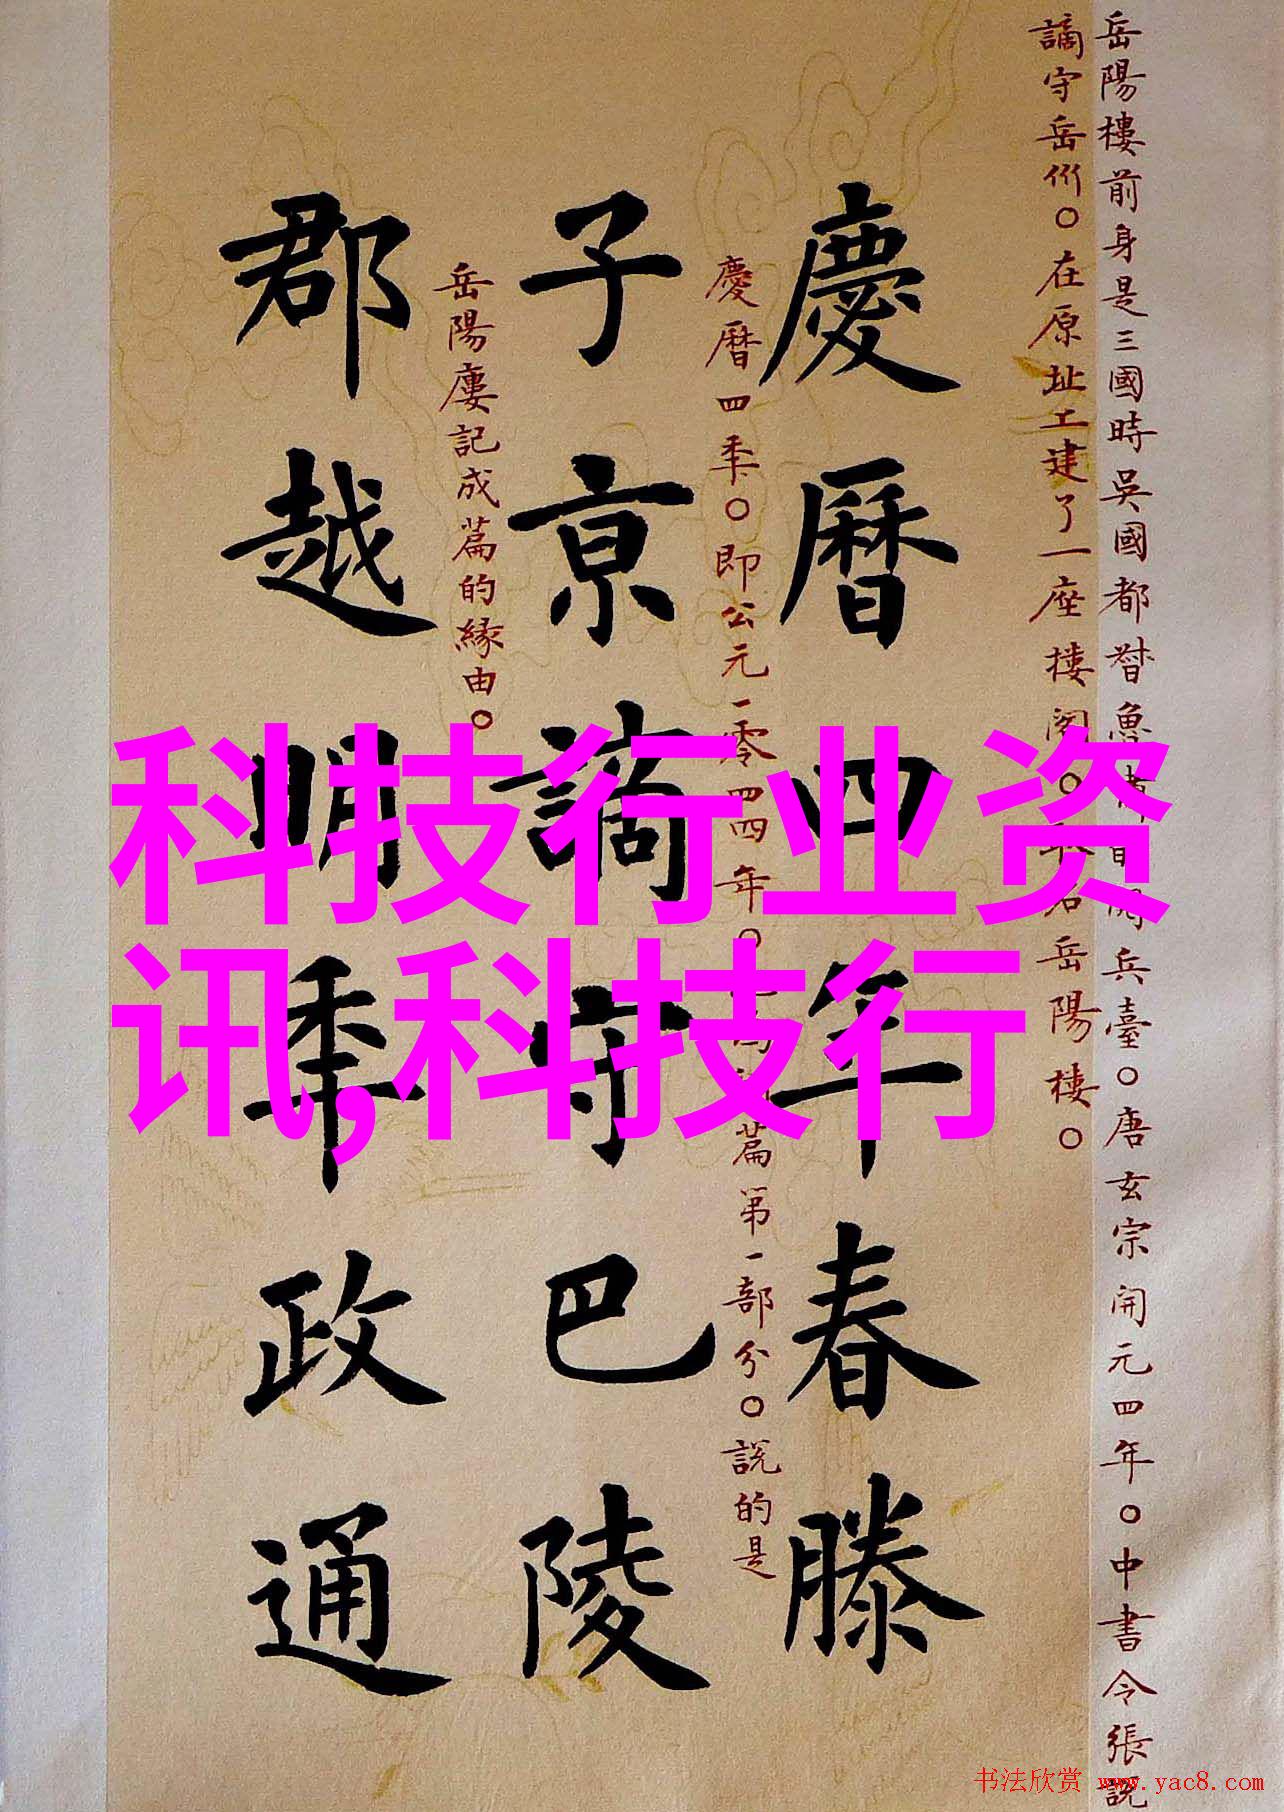 岳陽樓前身是三國時吳國都督魯兵臺○唐玄宗開元四年○中書令張説
謫守岳州○在原址上建了一座樓閣○名岳陽樓○
慶曆四年春滕
慶曆四年○即公元一零四四年○篇第一部分○説的是
子京謫守巴陵
岳陽廔記成篇的緣由○
郡越明年政通
科技行业资
讯,科技行
书法欣赏 www.yac8.com